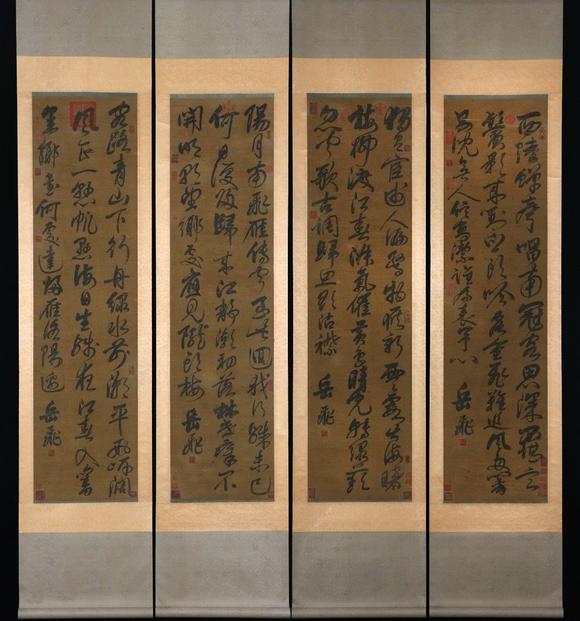 西陸蟬聲唱南冠客思深那堪玄
鬢影來對白頭吟露重飛難進風多響
易沉無人信高潔誰為表予心 岳飛
獨有宦遊人偏驚物候新雲霞出海曙
梅柳渡江春淑氣催黃鳥晴光轉綠蘋
忽聞歌古調歸思欲沾襟 岳飛
陽月南飛雁傳聞至此回我行殊未已
何日復歸來江靜潮初落林昏瘴不
開明朝望鄉處應見隴頭梅 岳飛
客路青山下行舟綠水前潮平兩岸闊
風正一懸帆海日生殘夜江春入舊
年鄉書何處達歸雁洛陽邊 岳飛